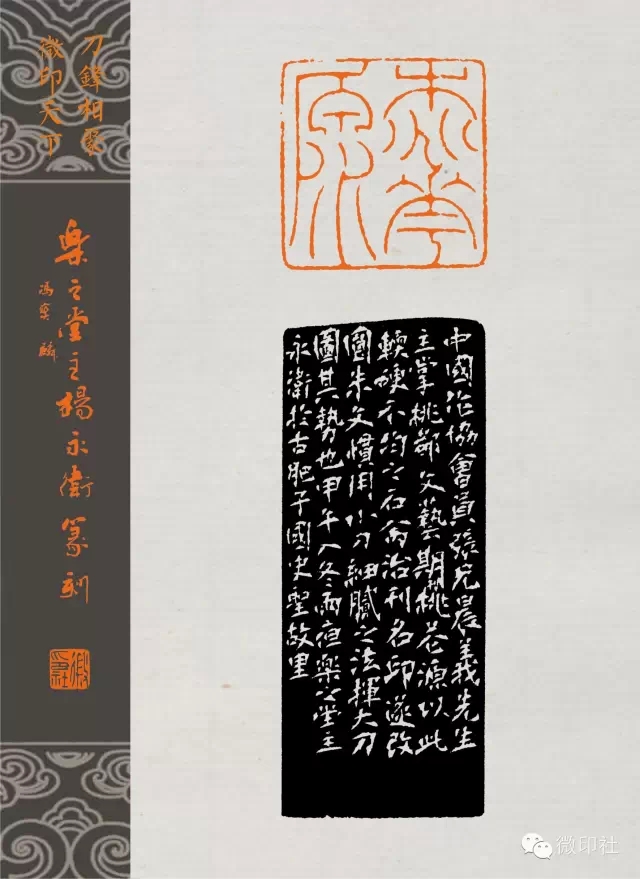 刀鋒相聚
微印天下
樂之堂主楊永衛篆刻
微印社
桃花
源
中國作協會員張兄晨義先生
主掌桃都文藝期桃花源以此
輭硬不均之石而治刊名印遂改
圓朱文慣用小刀細膩之法揮大刀
圖其勢也甲午入冬雨夜樂之堂主
永衛於古肥子國史聖故里
微印社